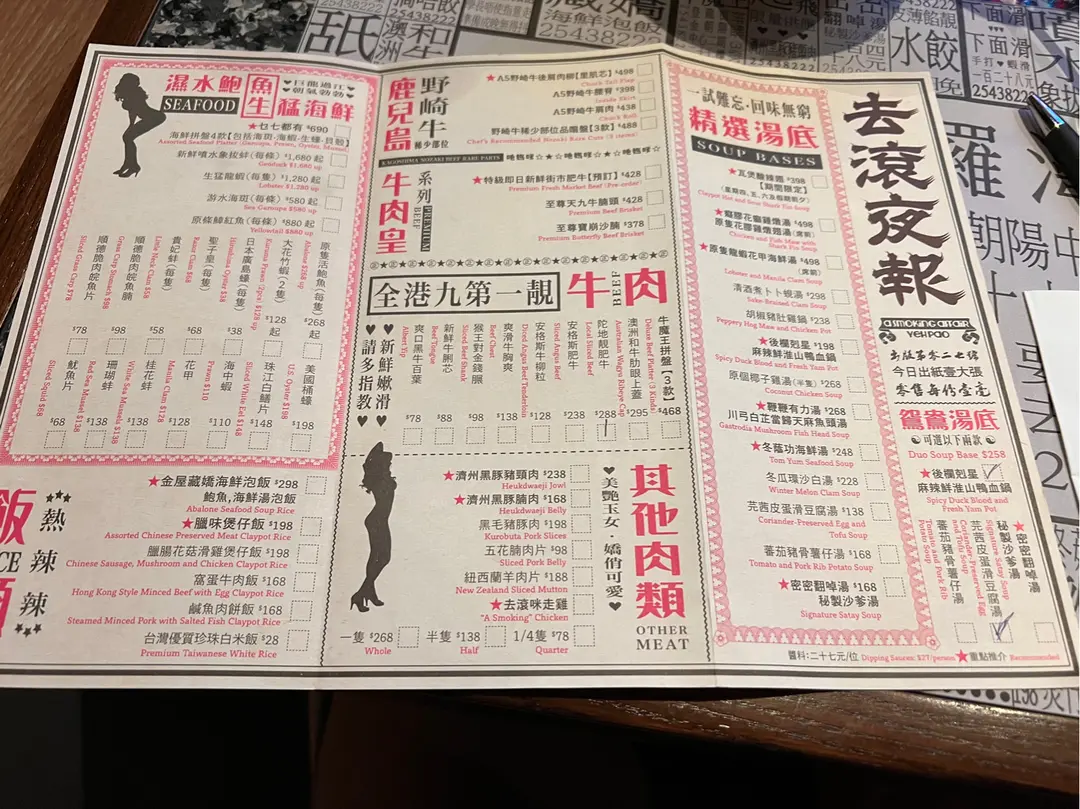 濕水鮑魚生猛海鮮
SEAFOOD
♥巨龍過江
朝氣勃勃♥
★乜七都有 $690
海鮮拼盤4款【包括海斑·海蝦·生蠔·貝殼】
Assorted Seafood Platter (Garoupa, Prawn, Oyster, Mussel)
新鮮噴水象拔蚌(每條) $1,680 起
Geoduck $1,680 up
生猛龍蝦(每條) $1,280 起
Lobster $1,280 up
游水海斑(每條) $580 起
Sea Garoupa $580 up
原條鰤魚(每條) $880 起
Yellowtail $880 up
原隻活鮑魚(每隻) $268起
Abalone $268 up
大花竹蝦(2隻) $128起
Kuruma Prawn (2pcs) $128 up
日本廣島蠔(每隻) $38
Hiroshima Oyster $38
聖子皇(每隻) $68
Razor Clam $68
貴妃蚌(每隻) $58
Little Neck Clam $58
順德脆肉皖魚腩 $98
Grass Carp Stomach $98
順德脆肉皖魚片 $78
Sliced Grass Carp $78
美國桶蠔 $198
U.S. Oyster $198
珠江白鱔片 $148
Sliced White Eel $148
海中蝦 $110
Prawn $110
花甲 $128
Manila Clam $128
桂花蚌 $138
White Sea Mussel $138
珊瑚蚌 $138
Red Sea Mussel $138
魷魚片 $68
Sliced Squid $68
飯
熱
辣
辣
★金屋藏嬌海鮮泡飯 $298
鮑魚,海鮮湯泡飯
Abalone Seafood Soup Rice
★臘味煲仔飯 $198
Assorted Chinese Preserved Meat Claypot Rice
臘腸花菇滑雞煲仔飯 $198
Chinese Sausage, Mushroom and Chicken Claypot Rice
窩蛋牛肉飯 $168
Hong Kong Style Minced Beef with Egg Claypot Rice
鹹魚肉餅飯 $168
Steamed Minced Pork with Salted Fish Claypot Rice
台灣優質珍珠白米飯 $28
Premium Taiwanese White Rice
鹿兒島
野崎牛
稀少部位
KAGOSHIMA NOZAKI BEEF RARE PARTS
★A5野崎牛後肩肉柳【里肌芯】 $498
Chuck Tail Flap
A5野崎牛腰脊 $398
Inside Skirt
A5野崎牛肩肉 $438
Chuck Roll
野崎牛稀少部位品嚐盤【3款】 $488
Chef's Recommended Nozaki Rare Cuts (3 items)
牛肉皇
系列
PREMIUM BEEF
★特級即日新鮮街市肥牛【預訂】 $428
Premium Fresh Market Beef (Pre-order)
至尊天九牛腩頭 $428
Premium Beef Brisket
至尊寶崩沙腩 $378
Premium Butterfly Beef Brisket
全港九第一靚
牛肉
BEEF
♥新鮮嫩滑♥
♥請多指教♥
牛魔王拼盤【3款】 $468
Deluxe Beef Platter (3 Kinds)
澳洲和牛肋眼上蓋 $295
Australian Wagyu Ribeye Cap
陀地靚肥牛 $288
Local Sliced Beef
安格斯肥牛 $238
Sliced Angus Beef
安格斯牛柳粒 $128
Diced Angus Beef Tenderloin
爽滑牛胸爽 $138
Beef Chest
猴王對金錢𦟌 $98
Sliced Beef Shank
新鮮牛脷芯 $88
Beef Tongue
爽口黑牛百葉 $78
Albert Trip
其他肉類
OTHER MEAT
♥美艷玉女·嬌俏可愛♥
★濟州黑豚豬頸肉 $238
Heukdwaeji Jowl
★濟州黑豚腩肉 $168
Heukdwaeji Belly
黑毛豬豚肉 $198
Kurobuta Pork Slices
五花腩肉片 $98
Sliced Pork Belly
紐西蘭羊肉片 $188
New Zealand Sliced Mutton
★去滾味走雞
"A Smoking" Chicken
一隻 $268 半隻 $138 1/4隻 $78
Whole Half Quarter
一試難忘·回味無窮
精選湯底
SOUP BASES
★瓦煲酸辣翅 $398
【期間限定】
(星期四、五、六及假期前夕)
Claypot Hot and Sour Shark Fin Soup
原隻花膠雞燉翅湯
Chicken and Fish Maw with Shark Fin Soup
★原隻龍蝦花甲海鮮湯 $498
(席前)
Lobster and Manila Clam Soup
清酒煮卜卜蜆湯 $298
Sake Braised Clam Soup
胡椒豬肚雞鍋 $238
Peppery Hog Maw and Chicken Pot
★後欄剋星 $198
麻辣鮮淮山鴨血鍋
Spicy Duck Blood and Fresh Yam Pot
原個椰子雞湯(半隻) $268
Coconut Chicken Soup
★鞭鞭有力湯 $268
川弓白芷當歸天麻魚頭湯
Gastrodia Mushroom Fish Head Soup
★冬蔭功海鮮湯 $248
Tom Yum Seafood Soup
冬瓜環沙白湯 $228
Winter Melon Clam Soup
芫茜皮蛋滑豆腐湯 $138
Coriander-Preserved Egg and Tofu Soup
蕃茄豬骨薯仔湯 $168
Tomato and Pork Rib Potato Soup
★密密翻啅湯 $168
秘製沙爹湯
Signature Satay Soup
醬料:二十七元/位 Dipping Sauces: $27/person ★重點推介 Recommended
去滾夜報
A SMOKING AFFAIR
YEH PAO
出版第零二七號
今日出紙壹大張
零售每份壹毫
鴛鴦湯底
可選以下兩款
Duo Soup Base $258
★後欄剋星
麻辣鮮淮山鴨血鍋
Spicy Duck Blood and Fresh Yam Pot
★密密翻啅湯
秘製沙爹湯
Signature Satay Soup
芫茜皮蛋滑豆腐湯
Coriander-Preserved Egg and Tofu Soup
蕃茄豬骨薯仔湯
Tomato and Pork Rib Potato Soup
25438222
海鮮泡飯
水餃
下面滑
手打♥蝦滑
一百二十八元
25438222
羅
朝陽